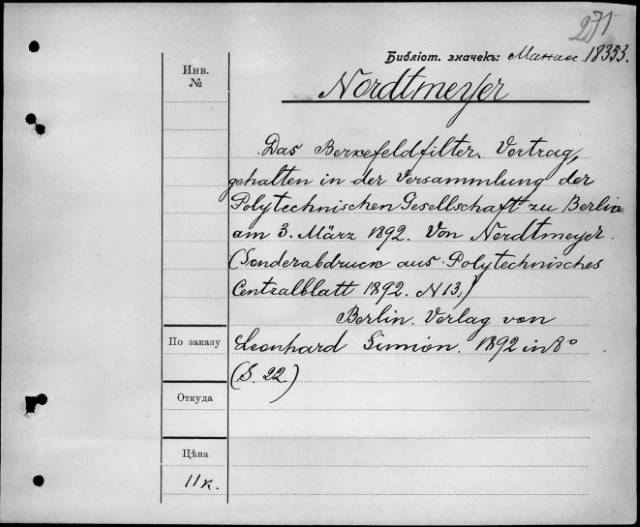 271
Библіот. значекъ: Манас 18353.
Инв.
№
Nordtmeyer
Das Berkefeldfilter. Vortrag,
gehalten in der Versammlung der
Polytechnischen Gesellschaft zu Berlin
am 3. März 1892. Von Nordtmeyer.
(Sonderabdruck aus Polytechnisches
Centralblatt 1892. N 13.)
Berlin. Verlag von
По заказу
Leonhard Simion. 1892 in 8°
(S. 22.)
Откуда
Цѣна
11 к.